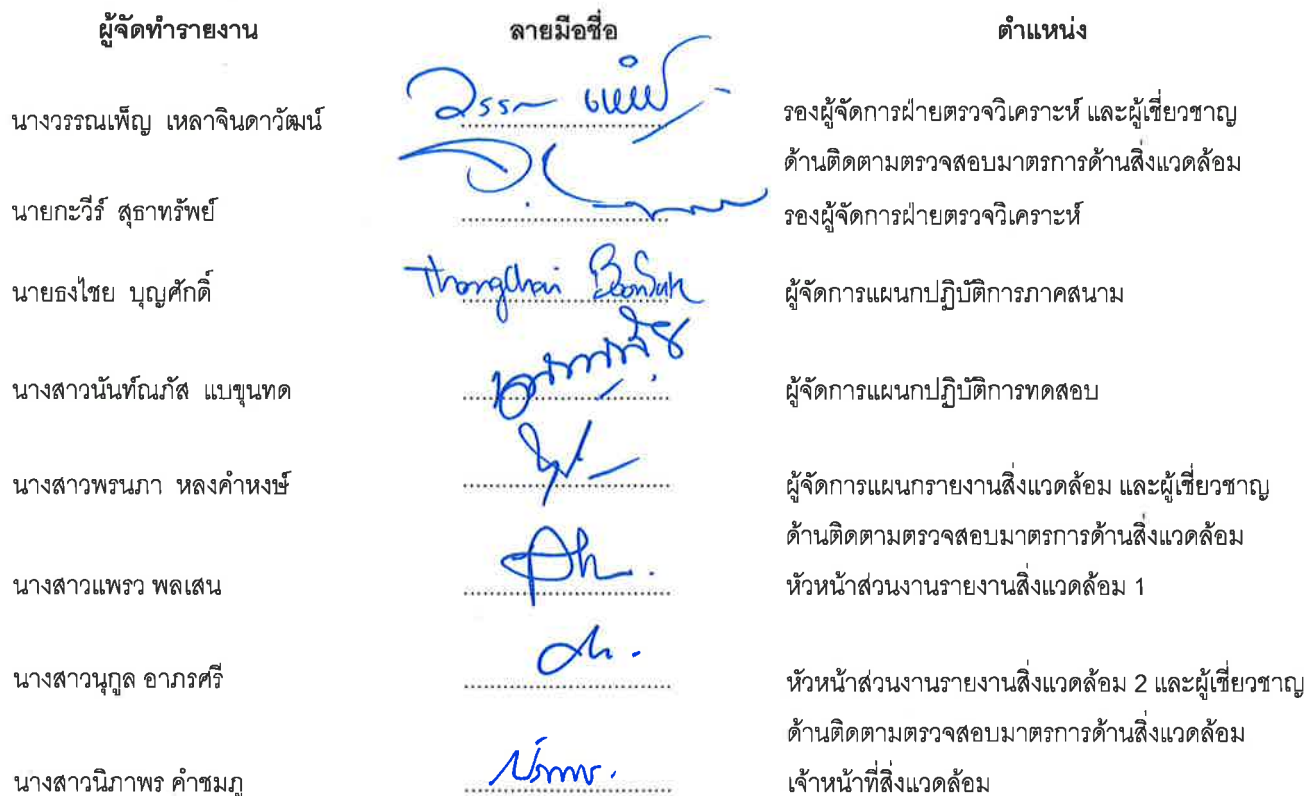 ผู้จัดทำรายงาน ลายมือชื่อ ตำแหน่ง
นางวรรณเพ็ญ เหลาจินดาวัฒน์ วรรณเพ็ญ รองผู้จัดการฝ่ายตรวจวิเคราะห์ และผู้เชี่ยวชาญ
ด้านติดตามตรวจสอบมาตรการด้านสิ่งแวดล้อม
นายกะวีร์ สุธาทรัพย์ รองผู้จัดการฝ่ายตรวจวิเคราะห์
นายธงไชย บุญศักดิ์ Thongchai Boonsak ผู้จัดการแผนกปฏิบัติการภาคสนาม
นางสาวนันท์ณภัส แบขุนทด ผู้จัดการแผนกปฏิบัติการทดสอบ
นางสาวพรนภา หลงคำหงษ์ ผู้จัดการแผนกรายงานสิ่งแวดล้อม และผู้เชี่ยวชาญ
ด้านติดตามตรวจสอบมาตรการด้านสิ่งแวดล้อม
นางสาวแพรว พลเสน หัวหน้าส่วนงานรายงานสิ่งแวดล้อม 1
นางสาวนุกูล อาภรศรี หัวหน้าส่วนงานรายงานสิ่งแวดล้อม 2 และผู้เชี่ยวชาญ
ด้านติดตามตรวจสอบมาตรการด้านสิ่งแวดล้อม
นางสาวนิภาพร คำชมภู นิภาพร. เจ้าหน้าที่สิ่งแวดล้อม